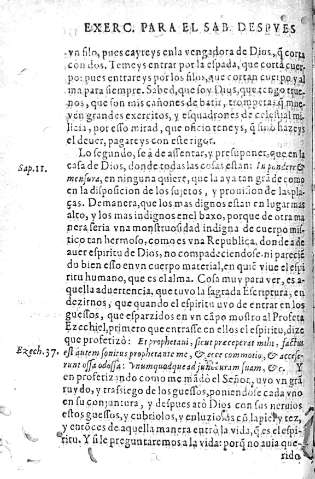 EXERC. PARA EL SAB. DESPVES
vn filo, pues cayreys en la vengadora de Dios, q̃ corta
con dos. Temeys entrar por la espada, que cortà cuer
po: pues entrareys por los filos, que cortan cuerpo y al
ma para siempre. Sabed, que soy Dios, que tengo true
nos, que son mis cañones de batir, trompetas q̃ mue
ven grandes exercitos, y esquadrones de celestial mi
licia, por esso mirad, que oficio teneys, q̃ si no hazeys
el deuer, pagareys con este rigor.
Lo segundo, se â de assentar, y presuponer, que en la
Sap. 11.
casa de Dios, donde todas las cosas estan: In pondere &
mensura, en ninguna quiere, que la aya tan grãde como
en la disposicion de los sujetos, y prouision de las pla-
ças. Demanera, que los mas dignos estan en lugar mas
alto, y los mas indignos en el baxo, porque de otra ma
nera seria vna monstruosidad indigna de cuerpo mis-
tico tan hermoso, como es vna Republica. donde a de
auer espiritu de Dios, no compadeciendose, ni parecié
do bien esso en vn cuerpo material, en quié viue el espi
ritu humano, que es el alma. Cosa muy para ver, es a-
quella aduertencia, que tuvo la sagrada Escriptura, en
dezirnos, que quando el espiritu uvo de entrar en los
guessos, que esparzidos en vn cãpo mostro al Profeta
Ezechiel, primero que entrasse en ellos el espiritu, dize
que profetizò: Et prophetani, sicut præceperat mihi, factus
Ezech. 37.
est autem sonitus prophetante me, & ecce commotio, & accesse-
runt ossa ad ossa: vnumquodque ad juncturam suam, &c. Y
en profetizando como me mãdò el Señor, uvo vn grã
ruydo, y trasiego de los guessos, poniendose cada vno
en su conjuntura, y despues atò Dios con sus neruios
estos guessos, y cubriolos, y enluziolos cõ la piel y tez,
y entõces de aquella manera entrò la vida, q̃ es el espi-
ritu. Y si le preguntaremos a la vida: porq̃ no auia que-
rido